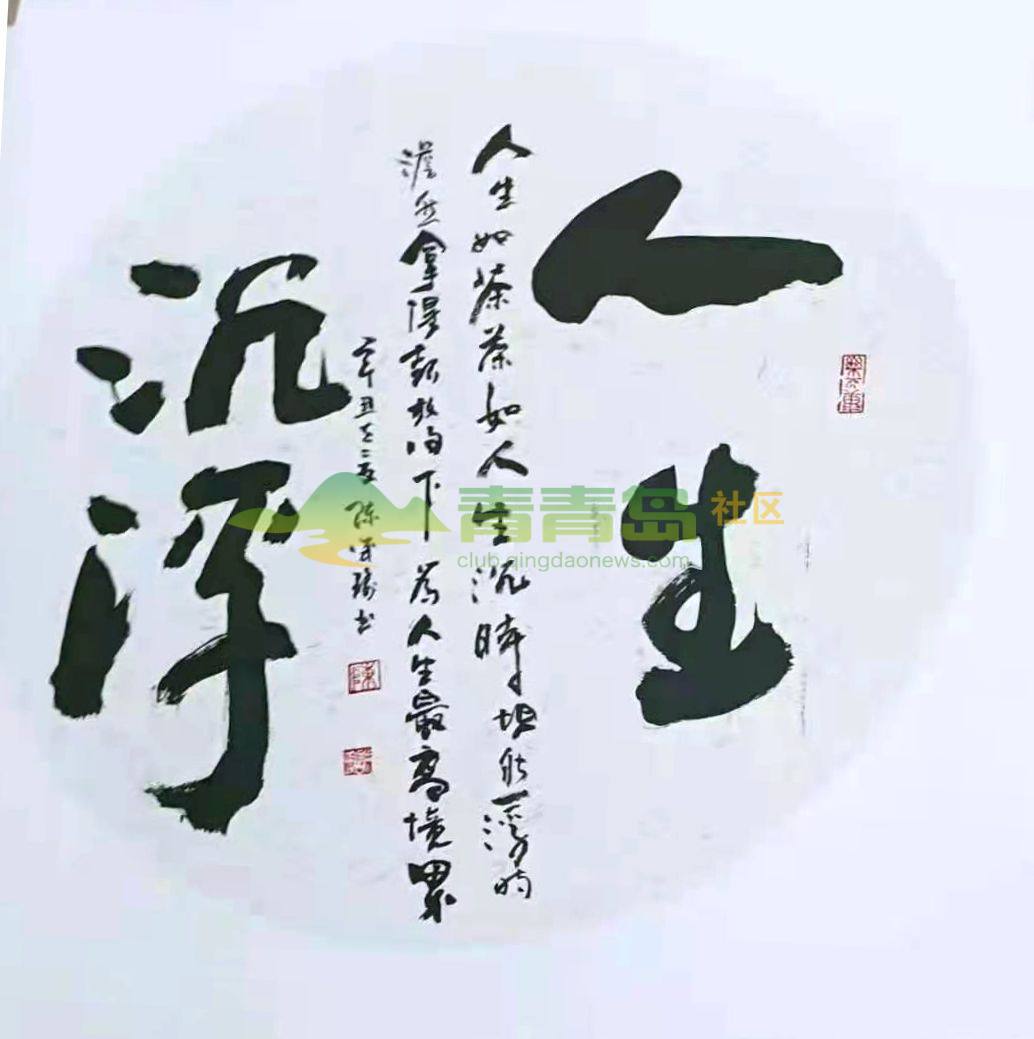 人生
人生如茶茶如人生沉時坦然浮时
澹然拿得起放得下為人生最高境界
辛丑之夏 陈 书
沉浮
青青岛社区
club.qingdaonews.com